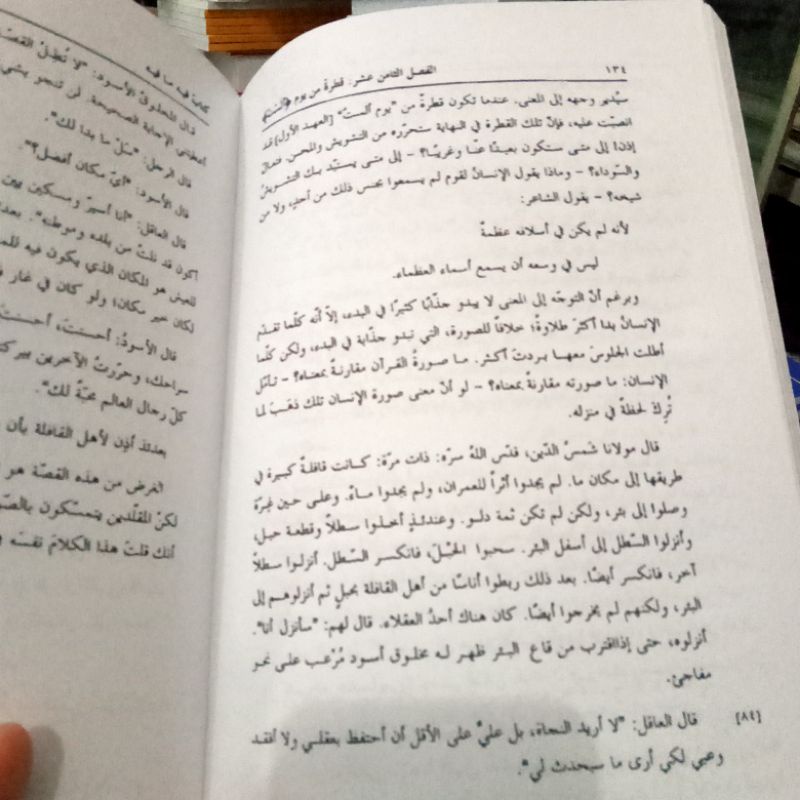 ١٣٤
الفصل الثامن عشر: قطرة من يوم ﴿ألست﴾
سيُدير وجهه إلى المعنى. عندما تكون قطرةٌ من "يوم ألست" [العهد الأول] قد
انصبّت عليه، فإنّ تلك القطرة في النهاية ستحرّره من التشويش والمحن. فتعالَ
إذن! إلى متى ستكون بعيدًا عنّا وغريبًا؟ - إلى متى يستبدّ بك التشويشُ
والسّوداء؟ - وماذا يقول الإنسانُ لقوم لم يسمعوا بجنس ذلك من أحدٍ، ولا من
شيخه؟ - يقول الشاعر:
لأنه لم يكن في أسلافه عظمةٌ
ليس في وسعه أن يسمع أسماء العظماء.
وبرغم أنّ التوجّه إلى المعنى لا يبدو جذّابًا كثيرًا في البدء، إلاّ أنّه كلّما تقدّم
الإنسانُ بدا أكثرَ طلاوةً؛ خلافًا للصورة، التي تبدو جذّابة في البدء، ولكن كلّما
أطلت الجلوسَ معها بردتَ أكثر. ما صورةُ القرآن مقارنةً بمعناه؟ - تأمّل
الإنسان: ما صورته مقارنةً بمعناه؟ - لو أنّ معنى صورة الإنسان تلك ذهَبَ لما
تُرِكَ لحظةً في منزله.
قال مولانا شمسُ الدّين، قدّس اللهُ سرّه: ذات مرّة: كانت قافلةٌ كبيرة في
طريقها إلى مكان ما. لم يجدوا أثراً للعمران، ولم يجدوا ماءً. وعلى حين غِرّة
وصلوا إلى بئر، ولكن لم تكن ثمة دلو. وعندئذٍ أخذوا سطلاً وقطعة حبل،
وأنزلوا السّطل إلى أسفل البئر. سحبوا الحَبْلَ، فانكسر السّطل. أنزلوا سطلاً
آخر، فانكسر أيضًا. بعد ذلك ربطوا أناسًا من أهل القافلة بحبلٍ ثم أنزلوهم إلى
البئر، ولكنهم لم يخرجوا أيضًا. كان هناك أحدُ العقلاء. قال لهم: "سأنزل أنا".
أنزلوه، حتى إذااقترب من قاع البئر ظهر له مخلوق أسود مُرْعب على نحو
مفاجئ.
[٨٤] قال العاقل: "لا أريد النجاة، بل عليّ على الأقل أن أحتفظ بعقلي ولا أفقد
وعيي لكي أرى ما سيحدث لي".
كتاب فيه ما فيه
قال المخلوق الأسود: "لا تُطِلْ القصّة
أعطيتني الإجابة الصحيحة. لن تنجو بشيء
قال الرجل: "سَلْ ما بدا لك".
قال الأسود: "أيّ مكان أفضل؟"
قال العاقل: "أنا أسيرٌ ومسكين بين
أكون قد نلتُ من بلده وموطنه". بعد
للعيش هو المكان الذي يكون فيه للمـ
لكان خير مكان؛ ولو كان في غار
قال الأسودُ: أحسنتَ، أحسنتَ
سراحك، وحرّرتُ الآخرين ببركتـ
كلّ رجال العالم محبّةً لك".
بعدئذ أذِن لأهل القافلة بأن
الغرض من هذه القصّة هو
لكنّ المقلّدين يتمسّكون بالصّو
أنك قلتَ هذا الكلامَ نفسَه